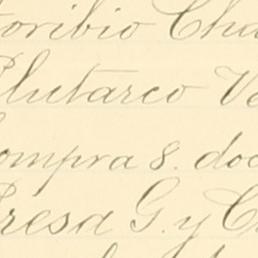 Toribio Cha
Plutarco Ve
Compra 8. doc
Teresa G. y C